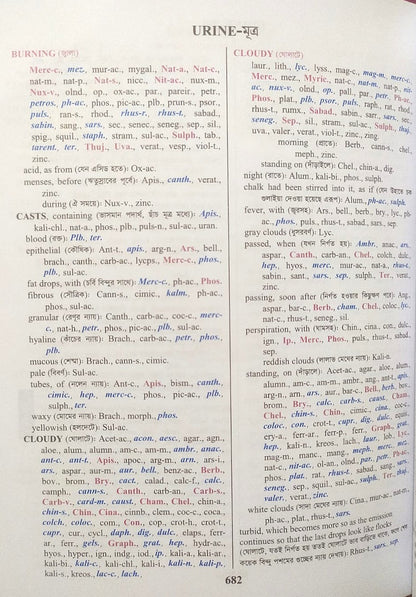 URINE-মূত্র
BURNING (জ্বালা)
Merc-c., mez., mur-ac., mygal., Nat-a., Nat-c.,
nat-m., nat-p., Nat-s., nicc., Nit-ac., nux-m.,
Nux-v., olnd., op., ox-ac., par., pareir., petr.,
petros., ph-ac., phos., pic-ac., plb., prun-s., psor.,
puls., ran-s., rhod., rhus-r., rhus-t., sabad.,
sabin., sang., sars., sec., senec., seneg., sep., sil.,
spig., squil., staph., stram., sul-ac., Sulph., tab.,
tarent., ter., Thuj., Uva., verat., vesp., viol-t.,
zinc.
acid, as from (যেন এসিড হতে): Ox-ac.
menses, before (ঋতুস্রাবের পূর্বে): Apis., canth., verat.,
zinc.
during (ঐ সময়ে): Nux-v., zinc.
CASTS, containing (ভাসমান পদার্থ, ছাঁচ মূত্র মধ্যে): Apis.,
kali-chl., nat-a., phos., plb., puls-n., sul-ac., uran.
blood (রক্ত): Plb., ter.
epithelial (কৌষিক): Ant-t., apis., arg-n., Ars., bell.,
brach., canth., carb-ac., lycps., Merc-c., phos.,
plb., sul-ac.
fat drops, with (চর্বি বিন্দুর সাথে): Merc-c., ph-ac., Phos.
fibrous (সৌত্রিক): Cann-s., cimic., kalm., ph-ac.,
phos., sulph.
granular: Canth., carb-ac., coc-c., merc-
c., nat-h., petr., phos., pic-ac., plb., sul-ac.
hyaline: Brach., carb-ac., petr., phos.,
plb.
mucous (শ্লেষ্মা): Brach., cann-s., cimic.
pale (বিবর্ণ): Sul-ac.
tubes, of (নলের ন্যায়): Ant-c., Apis., bism., canth.,
cimic., hep., merc-c., phos., pic-ac., plb.,
sulph., ter.
waxy (মোমের ন্যায়): Brach., morph., phos.
yellowish (হলদেটে): Sul-ac.
CLOUDY (ঘোলাটে): Acet-ac., acon., aesc., agar., agn.,
aloe., alum., alumn., am-c., am-m., ambr., anac.,
ant-c., ant-t., Apis., apoc., arg-n., arn., ars-i.,
ars., aspar., aur-m., aur., bell., benz-ac., Berb.,
bov., brom., Bry., cact., calad., calc-f., calc.,
camph., cann-s., Canth., carb-an., Carb-s.,
Carb-v., card-m., caust., Cham., Chel., chin-a.,
chin-s., Chin., Cina., cinnb., clem., coc-c., coca.,
colch., coloc., com., Con., cop., crot-h., crot-t.,
cupr., cur., cycl., daph., dig., dulc., elaps., ferr-
ar., ferr., gels., Graph., grat., hep., hydr-ac.,
hyos., hyper., ign., indg., iod., ip., kali-a., kali-ar.,
kali-bi., kali-c., kali-chl., kali-i., kali-n., kali-p.,
kali-s., kreos., lac-c., lach.,
CLOUDY (ঘোলাটে):
laur., lith., lyc., lyss., mag-c., mag-m., merc-c.,
Merc., mez., Myric., nat-c., nat-m., nat-p., nit-
ac., nux-v., olnd., op., pall., par., petr., Ph-ac.,
Phos., plat., plb., psor., puls., raph., rat., rhod.,
rhus-t., rumx., Sabad., sabin., sarr., sars., sec.,
seneg., Sep., sil., stram., sul-ac., Sulph., thuj.,
uva., valer., verat., viol-t., zinc., zing.
morning (প্রাতে): Berb., cann-s., chel.,
meph., zinc.
standing on (দাঁড়াইলে): Chel., chin-a., dig.
night (রাতে): Alum., kali-bi., phos., sulph.
chalk had been stirred into it, as if (যেন উহাতে চক
গুলাইয়া দেওয়া হয়েছে এরূপ): Alum., ph-ac., sulph.
fever, with (জ্বরসহ): Ars., bell., berb., bry., lyc., ph-
ac., phos., puls., rhus-t., sabad., sep.
gray clouds (ধূসরবর্ণ): Lyc.
passed, when (যখন নির্গত হয়): Ambr., anac., ars.,
aspar., Canth., carb-an., Chel., colch., dulc.,
hep., hyos., merc., mur-ac., nat-a., rhus-t.,
sabin., sant., sars., sep., sulph., Ter., verat.,
zinc.
passing, soon after (নির্গত হওয়ার কিছুক্ষণ পরে): Ang.,
aspar., bar-c., Berb., cham., Chel., coloc., lyc.,
nat-c., rhus-t., seneg., sil.
perspiration, with (ঘামসহ): Chin., cina., con., dulc.,
ign., Ip., Merc., Phos., puls., rhus-t.,
sep.
reddish clouds (লালাভ মেঘের ন্যায়): Kali-n.
standing, on (দাঁড়ালে): Acet-ac., agar., aloe., alum.,
alumn., am-c., am-m., ambr., ang., ant-t., apis.,
arg-n., arn., ars., aur., bar-c., Bell., berb., bov.,
brom., Bry., calc., carb-s., caust., Cham.,
Chel., chin-s., Chin., cimic., cina., coc-c.,
coloc., con., crot-t., cupr., dig., dulc., gels.,
ery-a., ferr-ar., ferr-p., ferr., Graph., grat.,
hep., kali-n., kreos., lach., laur., lob., Lyc.,
mag-m., manc., mang., meph., merc., mez.,
nat-c., nit-ac., ol-an., olnd., par., petr., Ph-ac.,
phos., plat., rat., rhus-t., sabad., sang., sars.,
seneg., sep., squil., sul-ac., sulph., Ter., thuj.,
valer., verat., zinc.
white clouds (সাদা মেঘের ন্যায়): Cina., mur-ac., nat-m.,
ph-ac., plat., rhus-t., sars.
turbid, which becomes more so as the emission
continues so that the last drops look like flocks
Rhus-t., sars., sep.
682